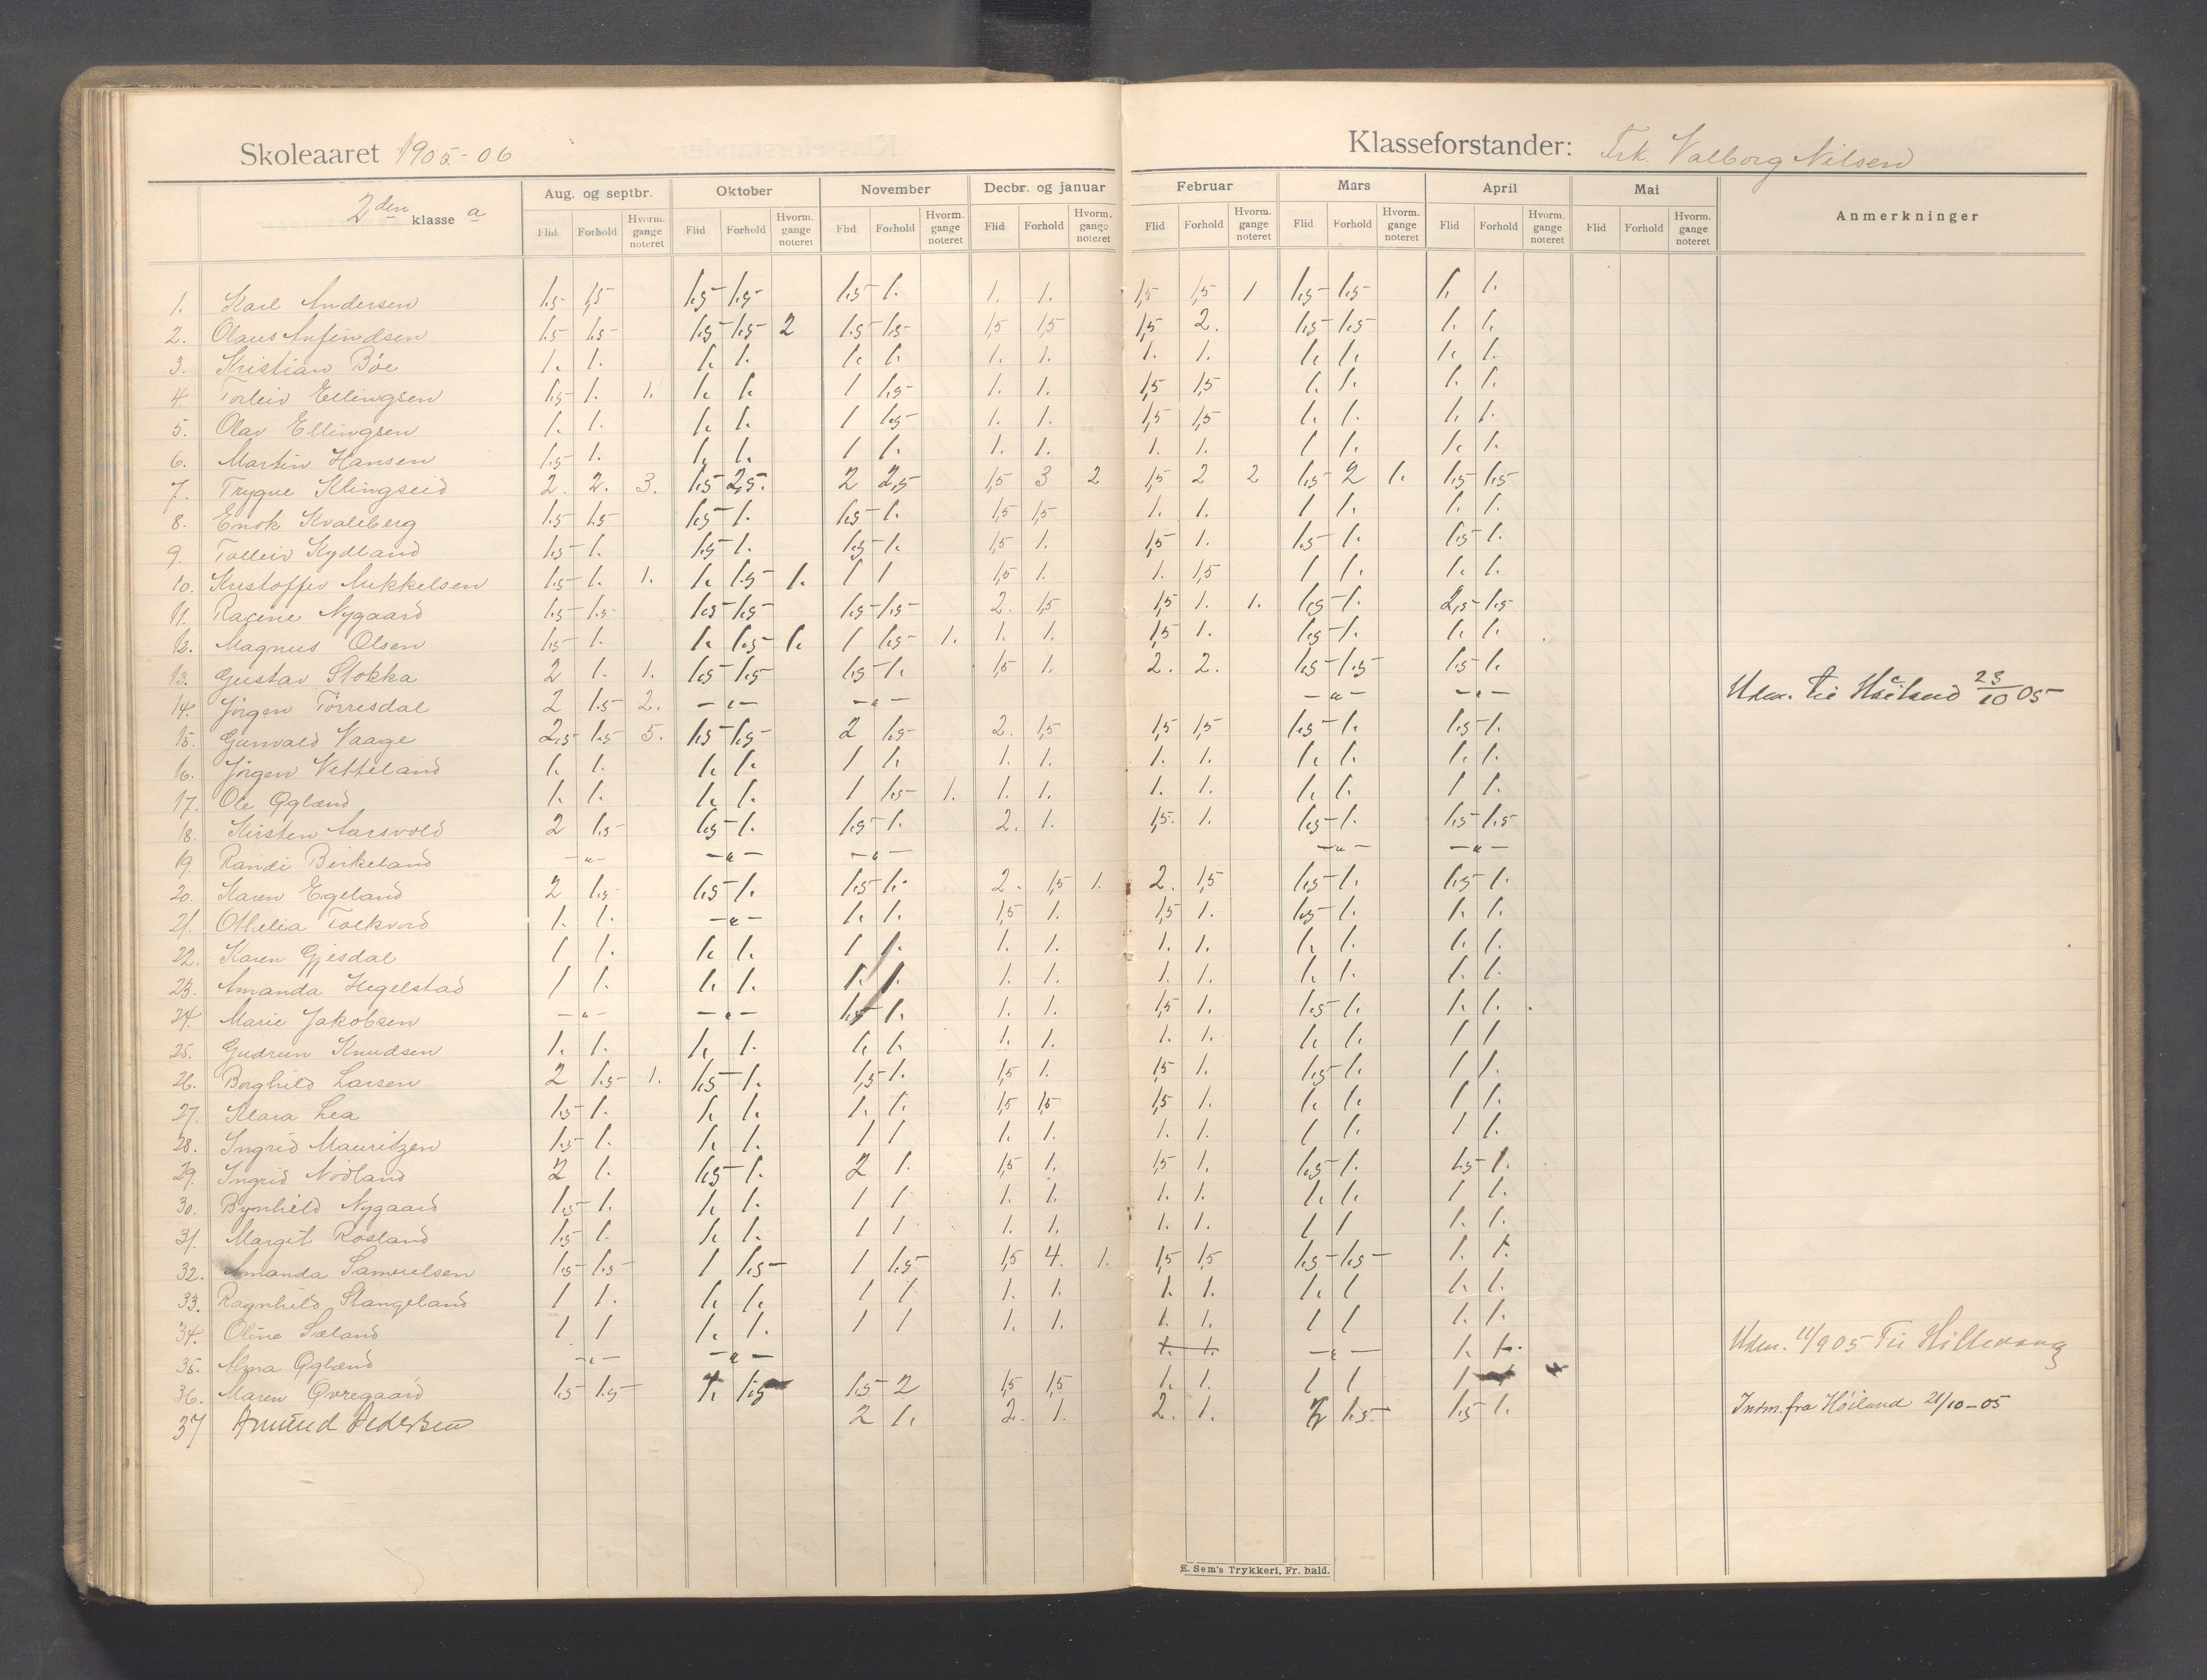 Skoleaaret 1905-06
Klasseforstander: Frk. Valborg Nilsen
2den klasse a
Aug. og septbr. Oktober November Decbr. og januar Februar Mars April Mai Anmerkninger
Flid Forhold Hvorm. gange noteret Flid Forhold Hvorm. gange noteret Flid Forhold Hvorm. gange noteret Flid Forhold Hvorm. gange noteret Flid Forhold Hvorm. gange noteret Flid Forhold Hvorm. gange noteret Flid Forhold Hvorm. gange noteret Flid Forhold Hvorm. gange noteret
1. Karl Andersen 1.5 1,5 1.5 1.5 1.5 1. 1. 1. 1,5 1,5 1 1.5 1.5 1. 1.
2. Olaus Anfindsen 1.5 1.5 1.5 1.5 2 1.5 1.5 1,5 1,5 1,5 2. 1.5 1.5 1. 1.
3. Kristian Böe 1. 1. 1. 1. 1. 1. 1. 1. 1. 1. 1. 1. 1. 1.
4. Torleiv Ellingsen 1.5 1. 1. 1. 1. 1 1.5 1. 1. 1,5 1,5 1. 1. 1. 1.
5. Olav Ellingsen 1. 1. 1. 1. 1 1.5 1. 1. 1,5 1,5 1. 1. 1. 1.
6. Martin Hansen 1.5 1. 1. 1. 1 1. 1. 1. 1. 1. 1 1. 1. 1.
7. Trygve Klingseid 2. 2. 3. 1.5 2,5. 2 2,5 1,5 3 2 1,5 2 2 1.5 2 1. 1.5 1.5
8. Enok Kvaleberg 1.5 1.5 1.5 1. 1.5 1. 1,5 1,5 1. 1. 1 1. 1. 1.
9. Tolleiv Kydland 1.5 1. 1.5 1. 1.5 1. 1,5 1. 1,5 1. 1.5 1. 1.5 1.
10. Kristoffer Mikkelsen 1.5 1. 1. 1. 1.5 1. 1 1 1,5 1. 1. 1,5 1 1. 1. 1.
11. Nygaard 1.5 1.5 1.5 1.5 1.5 1.5 2. 1,5 1,5 1. 1. 1.5 1. 2,5 1.5
12. Magnus Olsen 1.5 1. 1. 1.5 1. 1 1.5 1. 1. 1. 1,5 1. 1.5 1. 1. 1.
13. Gustav Stokka 2 1. 1. 1.5 1.5 1.5 1. 1,5 1. 2. 2. 1.5 1.5 1.5 1.
14. Jörgen Törresdal 2 1.5 2. -"- -"- -"- -"- Udm. til Høiland 23/10 05
15. Gunvald Vaage 2,5 1.5 5. 1.5 1.5 2 1.5 2. 1,5 1,5 1,5 1.5 1. 1.5 1.
16. Jörgen Vetteland 1. 1. 1. 1. 1 1. 1. 1. 1. 1. 1. 1. 1. 1.
17. Ole Ogland 1. 1. 1. 1. 1 1.5 1. 1. 1. 1. 1. 1. 1. 1 1.
18. Kirsten Aarsvold 2 1.5 1.5 1. 1.5 1. 2. 1. 1,5. 1. 1.5 1. 1.5 1.5
19. Randi Birkeland -"- -"- -"- -"- -"-
20. Karen Egeland 2 1.5 1.5 1. 1.5 1. 2. 1,5 1. 2. 1,5 1.5 1. 1.5 1.
21. Othelia Folkvord 1. 1. -"- 1. 1. 1,5 1. 1,5 1. 1.5 1. 1. 1.
22. Karen Gjesdal 1 1. 1. 1. 1 1. 1. 1. 1. 1. 1. 1. 1. 1.
23. Amanda Hegelstad 1 1. 1. 1. 1. 1. 1. 1. 1. 1. 1. 1. 1. 1.
24. Marie Jakobsen -"- -"- 1.5 1. 1. 1. 1,5 1. 1.5 1. 1. 1.
25. Gudrun Knudsen 1. 1. 1. 1. 1. 1. 1. 1. 1. 1. 1. 1. 1 1
26. Borghild Larsen 2 1.5 1. 1.5 1. 1,5 1. 1,5 1. 1,5 1. 1.5 1. 1 1.
27. Klara Lea 1.5 1. 1. 1. 1. 1. 1,5 1,5 1,5 1. 1. 1. 1 1.
28. Ingrid Mauritzen 1.5 1. 1. 1. 1 1 1. 1. 1. 1. 1 1. 1 1.
29. Ingrid Nodland 2 1. 1.5 1. 2 1. 1,5 1. 1,5 1. 1.5 1. 1.5 1.
30. Bynhild Nygaard 1.5 1. 1. 1. 1 1 1. 1. 1. 1. 1. 1. 1 1.
31. Margit Rosland 1.5 1. 1. 1. 1 1 1. 1. 1. 1. 1 1 1. 1.
32. Amanda Samuelsen 1.5 1.5 1 1.5 1 1.5 1,5 4. 1. 1,5 1,5 1.5 1.5 1. 1.
33. Ragnhild Stangeland 1 1. 1. 1. 1 1 1. 1. 1. 1. 1. 1 1. 1.
34. Oline Sæland 1 1 1. 1. 1 1 1. 1. 1. 1. 1 1 1. 1.
35. Alma Ogland -"- -"- 1. 1. -"- 1. 1. Udm. 11/9 05 til Hillevaag
36. Maren Ovregaard 1.5 1.5 1. 1.5 1.5 2 1,5 1,5 1. 1. 1 1 1
37 Amund Pedersen 2 1. 2. 1. 2. 1. 2 1.5 1.5 1. Indm. fra Höiland 21/10-05
E. Sem's Trykkeri, Fr. hald.